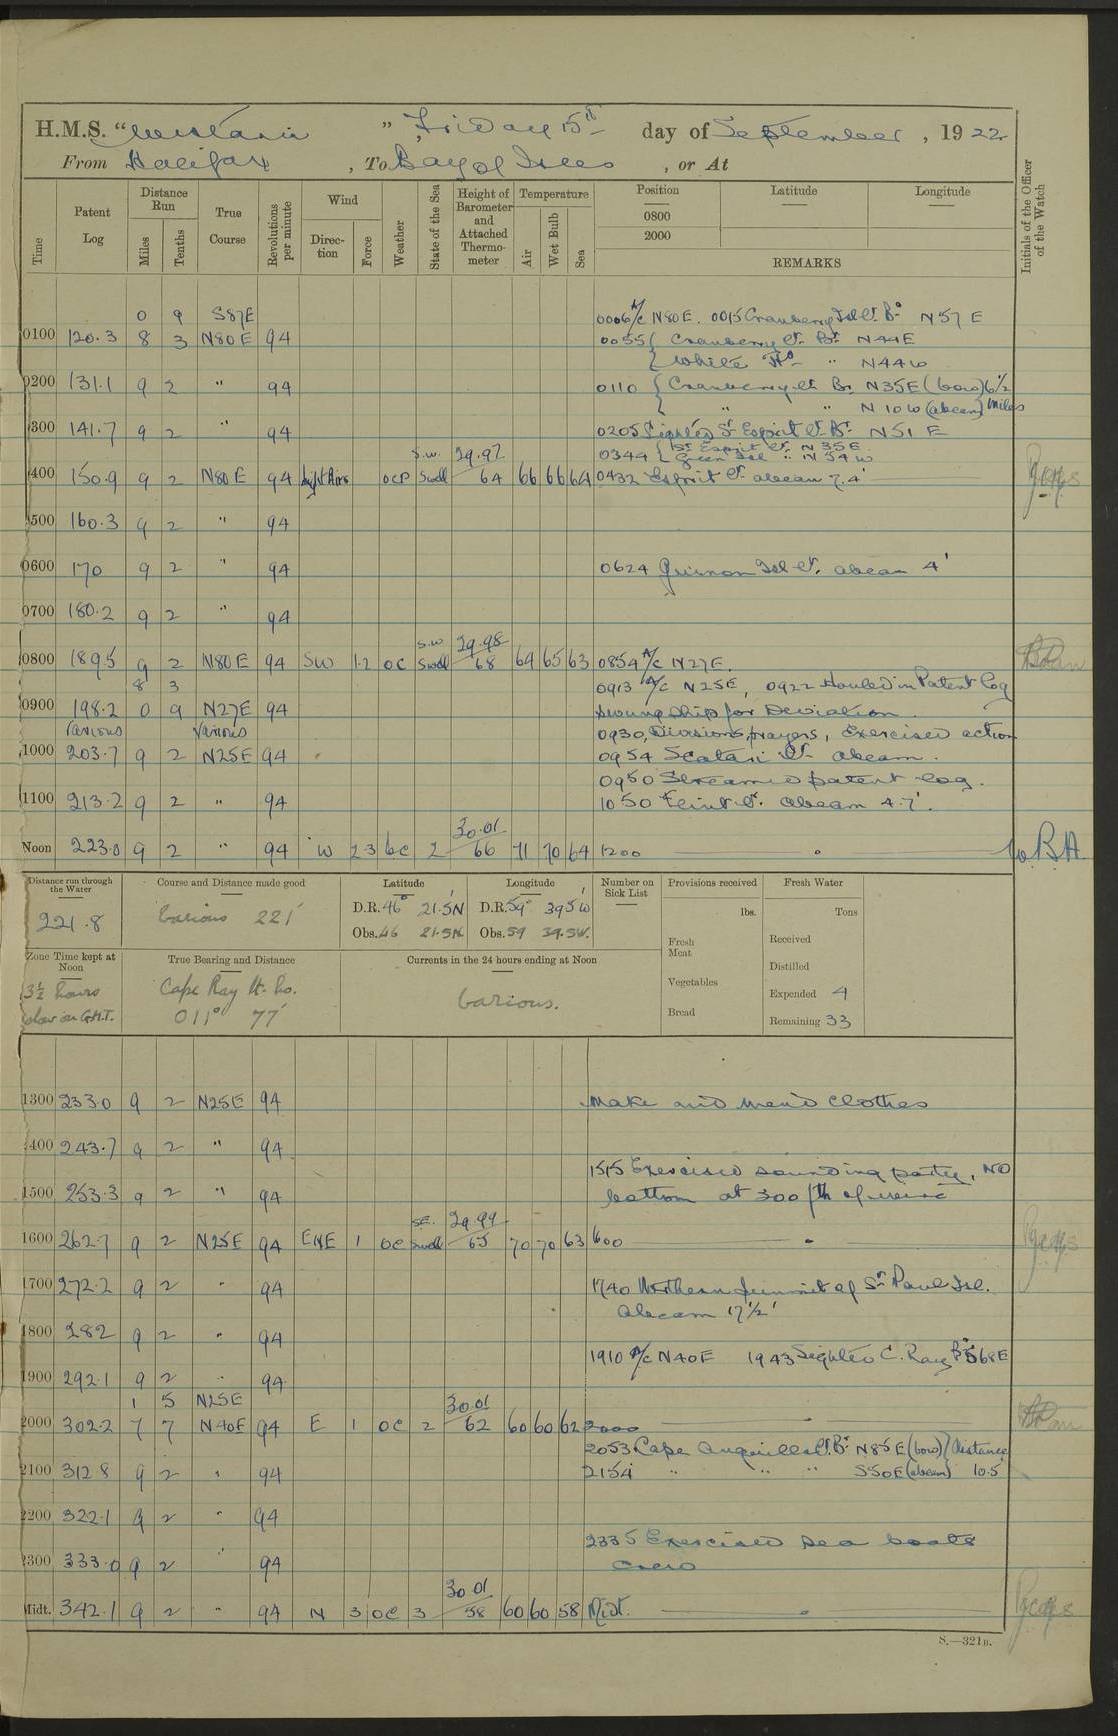 H.M.S. "Wistaria" Friday 15th day of September, 1922
From Halifax, To Bay of Isles, or At
Time
Patent Log
Distance Run
Miles
Tenths
True Course
Revolutions per minute
Wind
Direction
Force
Weather
State of the Sea
Height of Barometer and Attached Thermometer
Temperature
Air
Wet Bulb
Sea
Position
0800
2000
Latitude
Longitude
REMARKS
Initials of the Officer of the Watch
0 9 S87E 0006 A/c N80E. 0015 Cranberry Isl Lt. Bg N57E
0100 120.3 8 3 N80E 94 0055 { Cranberry Lt. Bg. N44E
{ White Hd " N44W
0200 131.1 9 2 " 94 0110 { Cranberry Lt Bg N35E (bow) 6 1/2
{ " " N10W (abeam) miles
0300 141.7 9 2 " 94 0205 Sighted St Esprit Lt. Bg. N51E
0344 { St. Esprit Lt. N35E
{ Green Isl " N54W
0400 150.9 9 2 N80E 94 Light Airs OCP S.W. Swell 29.97 64 66 66 64 0432 Esprit Lt. abeam 7.4'
0500 160.3 9 2 " 94
0600 170 9 2 " 94 0624 Guinon Isl Lt. abeam 4'
0700 180.2 9 2 " 94
0800 189.5 9 2 N80E 94 SW 1.2 OC S.W. Swell 29.98 68 64 65 63 0854 A/c N27E.
8 3 0913 A/c N25E, 0922 Hauled in Patent Log
0900 198.2 0 9 N27E 94 Swung Ship for Deviation
Various Various 0930, Divisions, prayers, Exercised action
1000 203.7 9 2 N25E 94 0954 Scatari Lt. abeam.
0950 Streamed patent log.
1100 213.2 9 2 " 94 1050 Flint Lt. abeam 4.7'.
Noon 223.0 9 2 " 94 W 2 3 bc 2 30.01 66 71 70 64 1200
Distance run through the Water
221.8
Course and Distance made good
Various 221'
Latitude
D.R. 46° 21.5N
Obs. 46 21.5N
Longitude
D.R. 59° 39.5W
Obs. 59 39.5W.
Number on Sick List
Provisions received
lbs.
Fresh Meat
Vegetables
Bread
Fresh Water
Tons
Received
Distilled
Expended 4
Remaining 33
Zone Time kept at Noon
3½ hours
slow on G.M.T.
True Bearing and Distance
Cape Ray Lt. Ho.
011° 77'
Currents in the 24 hours ending at Noon
Various.
1300 233.0 9 2 N25E 94 Make and mend clothes
1400 243.7 9 2 " 94
1515 Exercised sounding party, NO
1500 253.3 9 2 " 94 bottom at 300 fth of wire
1600 262.7 9 2 N25E 94 ENE 1 OC SE. Swell 29.99 65 70 70 63 1600
1700 272.2 9 2 " 94 1740 Northern Summit of St Paul Isl.
abeam 17½'
1800 282 9 2 " 94
1910 A/c N40E 1943 Sighted C. Ray Bg S68E
1900 292.1 9 2 " 94
1 5 N25E
2000 302.2 7 7 N40E 94 E 1 OC 2 30.01 62 60 60 62 2000
2053 Cape Anguille Lt. Bg N85E (bow) } Distance
2100 312.8 9 2 " 94 2154 " " " S50E (abeam) 10.5
2200 322.1 9 2 " 94
2335 Exercised sea boats
2300 333.0 9 2 " 94 crew
Midt. 342.1 9 2 " 94 N 3 OC 3 30.01 58 60 60 58 Midt.
S.—321B.